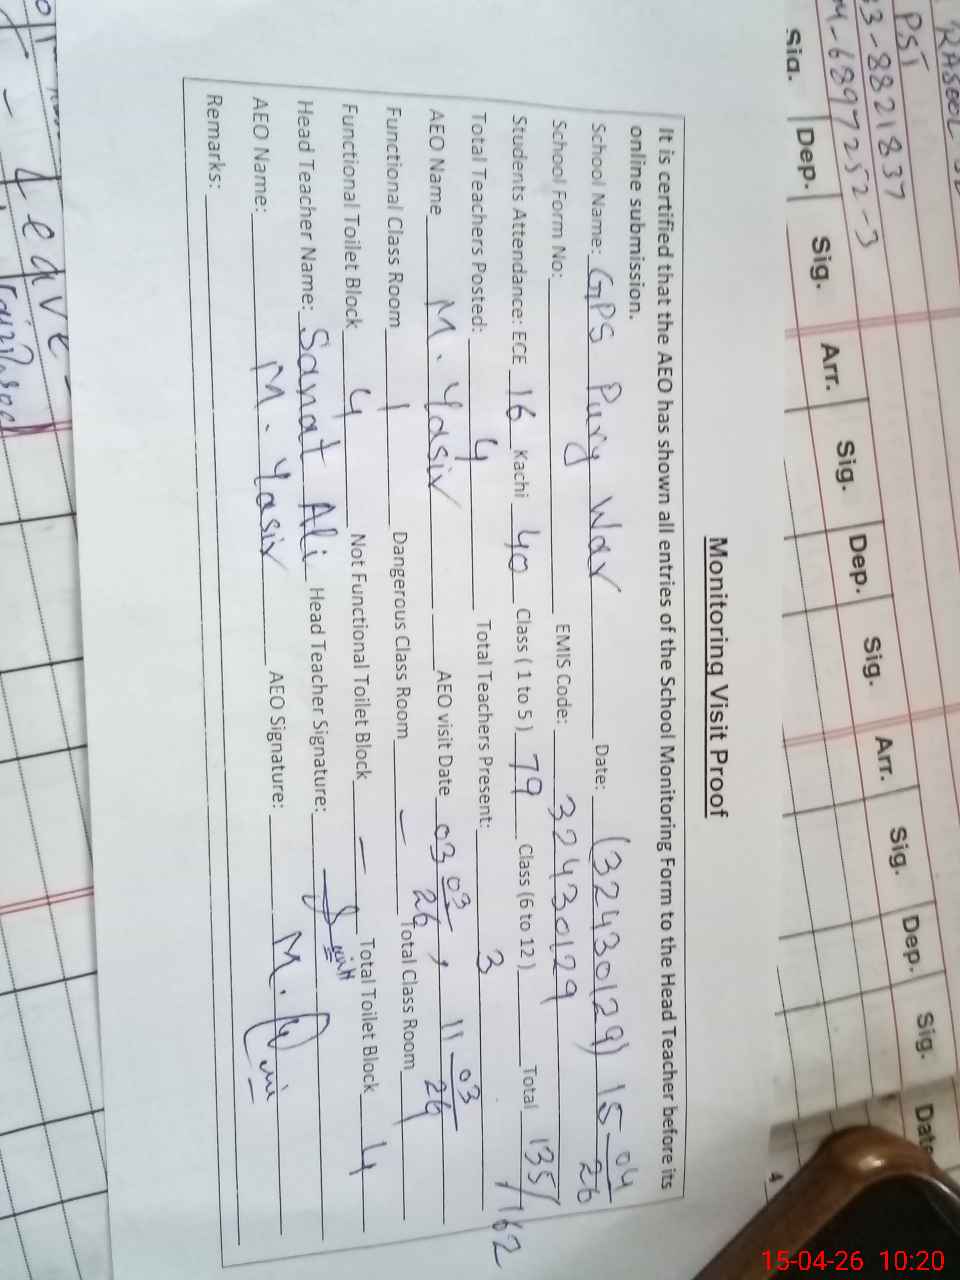 Monitoring Visit Proof
It is certified that the AEO has shown all entries of the School Monitoring Form to the Head Teacher before its
online submission.
School Name: GPS Pury War Date: (32430129) 15-04/26
School Form No: EMIS Code: 32430129
Students Attendance: ECE 16 Kachi 40 Class ( 1 to 5 ) 79 Class (6 to 12 ) Total 135/162
Total Teachers Posted: 4 Total Teachers Present: 3
AEO Name M. Yasir AEO visit Date 03 03/26, 11 03/26
Functional Class Room 1 Dangerous Class Room — Total Class Room
Functional Toilet Block 4 Not Functional Toilet Block — Total Toilet Block 4
Head Teacher Name: Sanat Ali Head Teacher Signature:
AEO Name: M. Yasir AEO Signature: M.
Remarks:
PST
33-8821837
M-6897252-3
Sig. Dep. Sig. Arr. Sig. Dep. Sig. Arr. Sig. Dep. Sig. Date
4
Leave
15-04-26 10:20